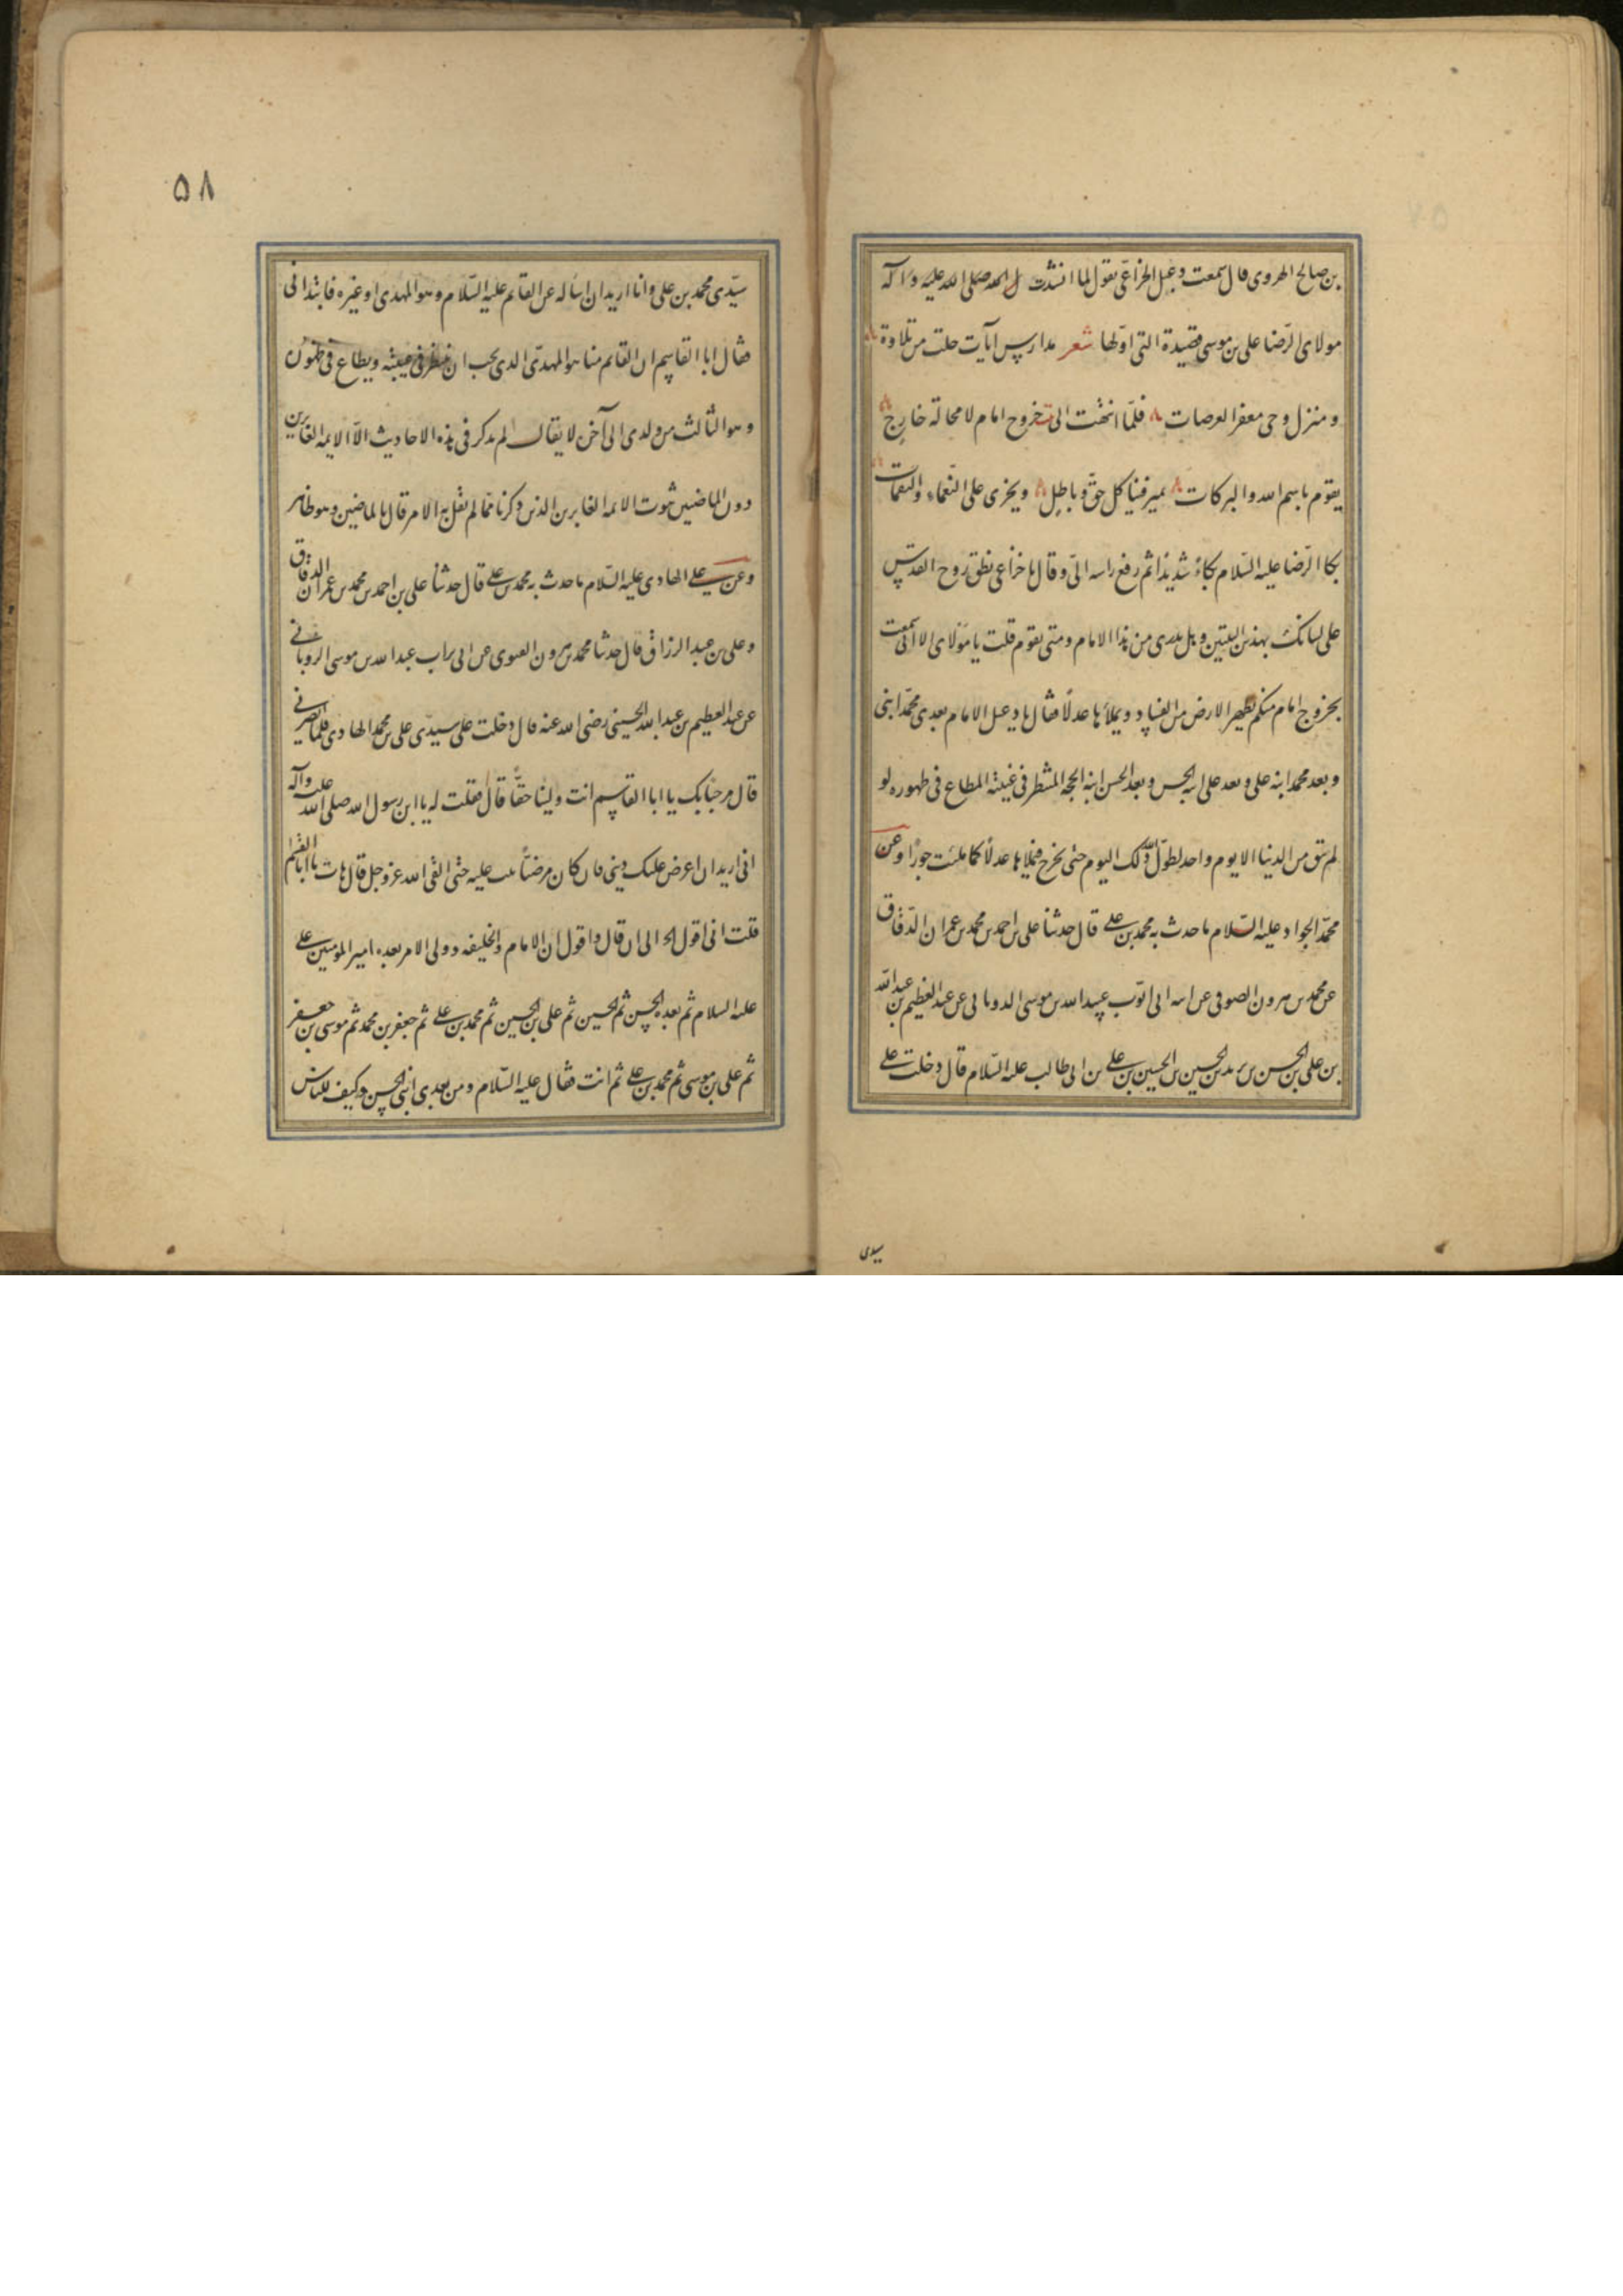 بن صالح الهروی قال سمعت دعبل الخزاعی یقول لما انشدت
مولای الرّضا علی بن موسی قصیدة التی اوّلها شعر مدارس آیات خلت من تلاوة
و منزل وحی مقفر العرصات فلمّا انتهت الی خروج امام لا محالة خارج
یقوم باسم الله و البرکات یمیز فینا کل حقّ و باطل و یجزی علی النّعماء و النقمات
بکا الرّضا علیه السّلام بکاءً شدیدًا ثم رفع راسه الیّ و قال یا خزاعی نطق روح القدس
علی لسانک بهذین البیتین و هل تدری من هذا الامام و متی یقوم قلت یا مولای الا انّی سمعت
بخروج امام منکم یطهر الارض من الفساد و یملأها عدلًا فقال یا دعبل الامام بعدی محمّد ابنی
و بعد محمد ابنه علی و بعد علی ابنه الحسن و بعد الحسن ابنه الحجه المنتظر فی غیبته المطاع فی ظهوره لو
لم یبق من الدنیا الا یوم واحد لطوّل الله ذلک الیوم حتی یخرج فیملاها عدلًا کما ملئت جورًا و عن
محمّد الجواد علیه السّلام ما حدث به محمد بن علی قال حدثنا علی بن احمد بن محمد بن عمران الدّقاق
عن محمد بن هرون الصوفی عن ابی تراب عبید الله بن موسی الرویانی عن عبد العظیم بن عبد الله
بن علی بن الحسن بن زید بن الحسین بن الحسین بن علی بن ابی طالب علیه السّلام قال دخلت علی
سیدی
۵۸
سیّدی محمد بن علی و انا ارید ان اساله عن القائم علیه السّلام و هو المهدی او غیره فابتدانی
فقال ابا القاسم ان القائم منا هو المهدّی الذی یجب ان ینتظر فی غیبته و یطاع فی ظهوره
و هو الثالث من ولدی الی آخره لا یقال لم یذکر فی هذه الاحادیث الّا الایمه الغابرین
دون الماضین ثبوت الایمه الغابرین الذین ذکرنا ممّا لم یقل به الا من قال بالماضین و هو ظاهر
و عن علی الهادی علیه السّلام ما حدث به محمد بن علی قال حدثنا علی بن احمد بن محمد بن عمران الدقاق
و علی بن عبد الرزاق قال حدثنا محمد بن هرون الصوفی عن ابی تراب عبد الله بن موسی الرویانی
عن عبد العظیم بن عبد الله الحسینی رضی الله عنه قال دخلت علی سیدّی علی بن محمد الهادی فلما بصرنی
قال مرحبًا بک یا ابا القاسم انت ولینا حقًّا قال فقلت له یا ابن رسول الله صلی الله علیه و آله
انی ارید ان اعرض علیک دینی فان کان مرضیًا ثبت علیه حتی القی الله عز و جل قال هات یا ابا القاسم
قلت انی اقول الی ان قال و اقول ان الامام و الخلیفه و ولی الامر بعده امیر المومنین علی
علیه السلام ثم بعده الحسن ثم الحسین ثم علی بن الحسین ثم محمد بن علی ثم جعفر بن محمد ثم موسی بن جعفر
ثم علی بن موسی ثم محمد بن علی ثم انت فقال علیه السّلام و من بعدی ابنی الحسن و کیف للناس